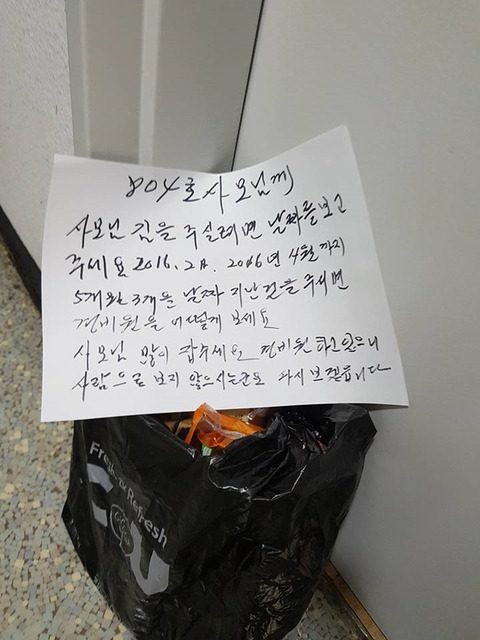 804호 사모님께
사모님 김을 주실려면 날짜를 보고
주세요 2016. 2月. 2016년 4월까지
5개월 3개월 날짜 지난것을 주시면
경비원을 어떻게 보세요
사모님 많이 잡수세요 경비원 하고 있으니
사람으로 보지 않으시는군요 다시 보겠읍니다
Fresh Refresh
CU